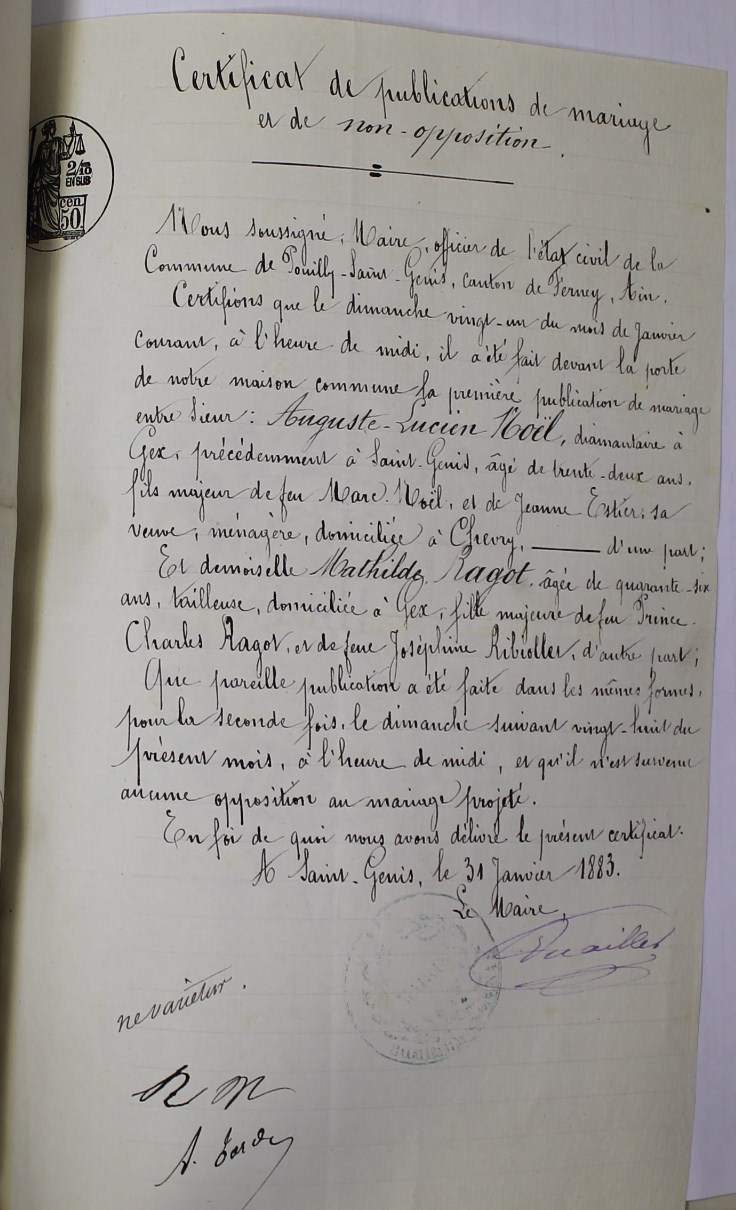 Certificat de publications de mariage
et de non-opposition.
2/10
EN SUS
cen
50.
Nous soussigné, Maire, officier de l'état civil de la
Commune de Pouilly-Saint-Genis, canton de Ferney, Ain.
Certifions que le dimanche vingt-un du mois de Janvier
courant, à l'heure de midi, il a été fait devant la porte
de notre maison commune la première publication de mariage
entre Sieur: Auguste-Lucien Noël, diamantaire à
Gex, précédemment à Saint-Genis, âgé de trente-deux ans,
fils majeur de feu Marc Noël, et de Jeanne Estier, sa
veuve, ménagère, domiciliée à Chevry, d'une part;
Et demoiselle Mathilde Ragot, âgée de quarante-six
ans, tailleuse, domiciliée à Gex, fille majeure de feu Prince-
Charles Ragot, et de feue Joséphine Ribiollet, d'autre part;
Que pareille publication a été faite dans les mêmes formes,
pour la seconde fois, le dimanche suivant vingt-huit du
présent mois, à l'heure de midi, et qu'il n'est survenu
aucune opposition au mariage projeté.
En foi de quoi nous avons délivré le présent certificat.
A Saint-Genis, le 31 Janvier 1883.
Le Maire,
ne varietur.
R M